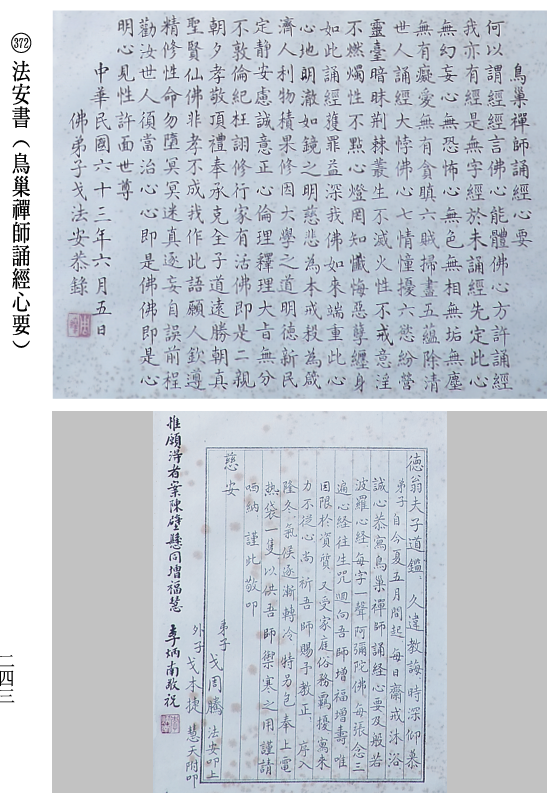 鳥巢禪師誦經心要
何以謂經經言佛心能體佛心方許誦經
我亦有經是無字經於未誦經先定此心
無幻妄心無恐怖心無色無相無垢無塵
無有癡愛無有貪瞋六賊掃盡五蘊除清
世人誦經大悖佛心七情憧擾六慾紛營
靈臺暗昧荆棘叢生不滅火性不戒意淫
不燃燭性不點心燈罔知懺悔惡孽纏身
如此誦經獲罪益深我佛如來端重此心
心地明澈如鏡之明慈悲為本戒殺為箴
濟人利物積果修因大學之道明德新民
定靜安慮誠意正心倫理釋理大旨無分
不敦倫紀枉詡修行家有活佛即是二親
朝夕孝敬頂禮奉承克全子道遠勝朝真
聖賢仙佛非孝不成我作此語願人欽遵
精修性命勿墮冥冥迷真逐妄自誤前程
勸汝世人須當治心心即是佛佛即是心
明心見性許面世尊
中華民國六十三年六月五日
佛弟子戈法安恭錄
德翁夫子道鑑 久違教誨時深仰慕
弟子自今夏五月間起每日齋戒沐浴
誠心恭寫鳥巢禪師誦経心要及般若
波羅心経每字一聲阿彌陀佛每張念三
遍心経往生咒迴向吾師增福增壽唯
因限於資質又受家庭俗務羈擾寫來
力不從心尚祈吾師賜予教正 序入
隆冬氣侯逐漸轉冷特另包奉上電
熱袋一隻以供吾師禦寒之用謹請
哂納 謹此敬叩
慈安
弟子 戈周騰 法安叩上
外子 戈本捷 慧天附叩
惟願得者案陳壁懸同增福慧 李炳南敬祝
372 法安書（鳥巢禪師誦經心要）
二四三